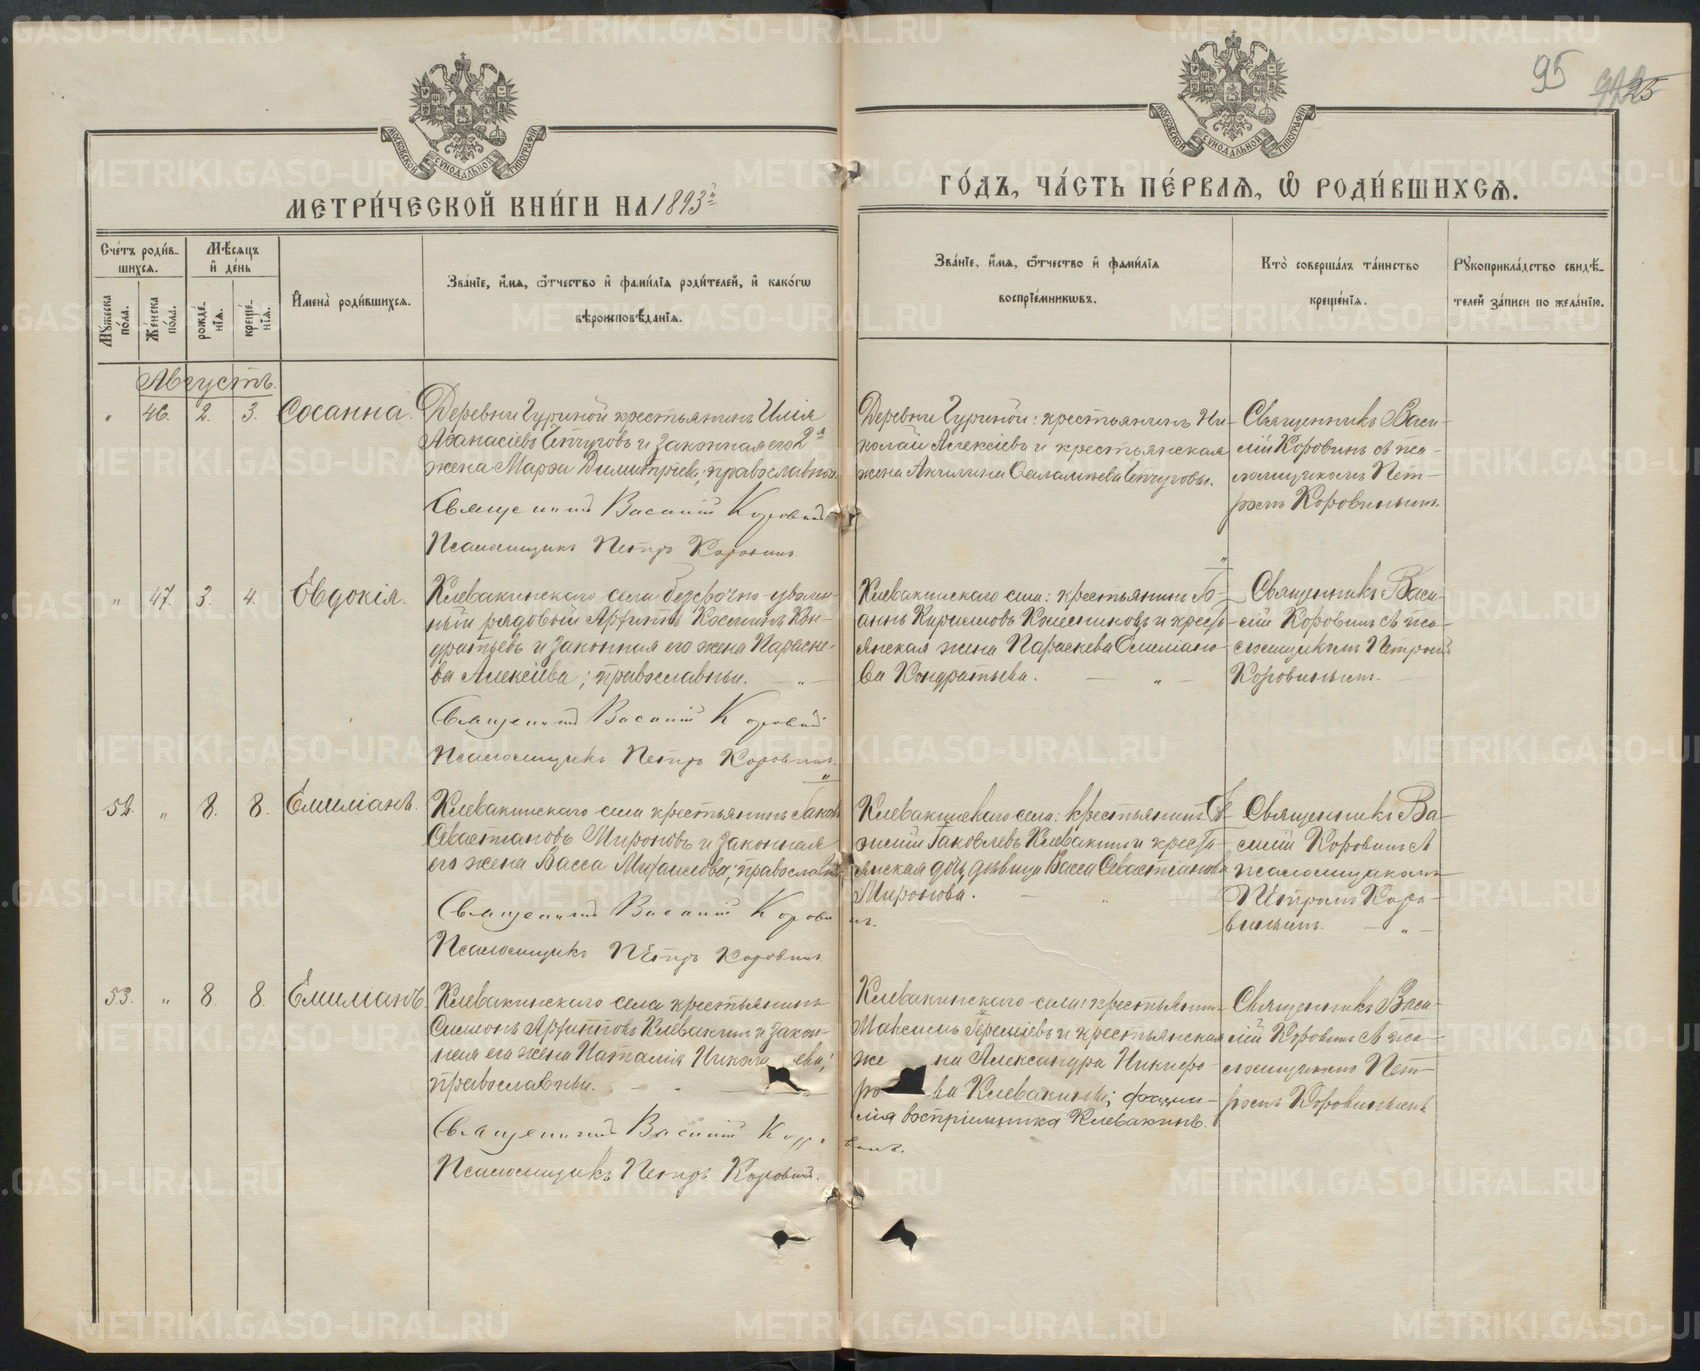 95
МЕТРИ́ЧЕСКОЙ КНИ́ГИ НА 1893й
ГО́ДЪ, ЧА́СТЬ ПЕ́РВАѦ, Ѡ҆ РОДИ́ВШИХСѦ.
МОСКОВСКОЙ СѴНОДАЛЬНОЙ ТИПОГРАФІИ
МОСКОВСКОЙ СѴНОДАЛЬНОЙ ТИПОГРАФІИ
Сче́тъ роди́в-
шихсѧ.
Мѣ́сѧцъ
и҆ де́нь
Мꙋ́жеска по́ла.
Же́нска по́ла.
рожде́-нїѧ.
креще́-нїѧ.
И҆мена̀ роди́вшихсѧ.
Зва́нїе, и҆́мѧ, ѻ҆́тчество и҆ фами́лїѧ роди́телей, и҆ како́гѡ
вѣроисповѣ́данїѧ.
Зва́нїе, и҆́мѧ, ѻ҆́тчество и҆ фами́лїѧ
воспрїе́мникѡвъ.
Кто̀ соверша́лъ та́инство
креще́нїѧ.
Рꙋкоприкла́дство свидѣ́-
телей за́писи по жела́нїю.
Августъ.
" 46. 2. 3. Сосанна.
Деревни Гуриной крестьянинъ Илія
Аѳанасіевъ Чепчуговъ и законная его 2я
жена Марѳа Димитріева, православны.
Священникъ Василій Коровинъ
Псаломщикъ Петръ Коровинъ
Деревни Гуриной: крестьянинъ Ни-
колай Алексіевъ и крестьянская
жена Акилина Чепчуговы.
Священникъ Васи-
лій Коровинъ съ пса-
ломщикомъ Пет-
ромъ Коровинымъ.
" 47. 3. 4. Евдокія.
Клевакинскаго села безсрочно-уволен-
ный рядовой Архиппъ Косминъ Кон-
дратьевъ и законная его жена Параске-
ва Алексіева; православны. — " —
Священникъ Василій Коровинъ
Псаломщикъ Петръ Коровинъ.
Клевакинскаго села: крестьянинъ Іо-
аннъ Кирилловъ и кресть-
янская жена Параскева
ва Кондратьева. — " —
Священникъ Васи-
лій Коровинъ съ пса-
ломщикомъ Петромъ
Коровинымъ.
52. " 8. 8. Емиліанъ.
Клевакинскаго села крестьянинъ Іаковъ
Севастіановъ Мироновъ и законная
его жена Васса Михаилова; православны.
Священникъ Василій Коровинъ.
Псаломщикъ Петръ Коровинъ
Клевакинскаго села: крестьянинъ Ев-
Іаковлевъ Клевакинъ и кресть-
янская дочь, дѣвица Васса Севастіанова
Миронова. — "
Священникъ Ва-
силій Коровинъ съ
псаломщикомъ
Петромъ Коро-
винымъ. — " —
53. " 8. 8. Емиліанъ
Клевакинскаго села крестьянинъ
Симеонъ Архипповъ Клевакинъ и закон-
ная его жена Наталія Николаева;
православны. — " —
Священникъ Василій Коровинъ.
Псаломщикъ Петръ Коровинъ.
Клевакинскаго села: крестьянинъ
Максимъ и крестьянская
жена Александра Никифо-
рова Клевакины; фами-
лія воспріемника Клевакинъ.
Священникъ Васи-
лій Коровинъ съ пса-
ломщикомъ Пет-
ромъ Коровинымъ
METRIKI.GASO-URAL.RU